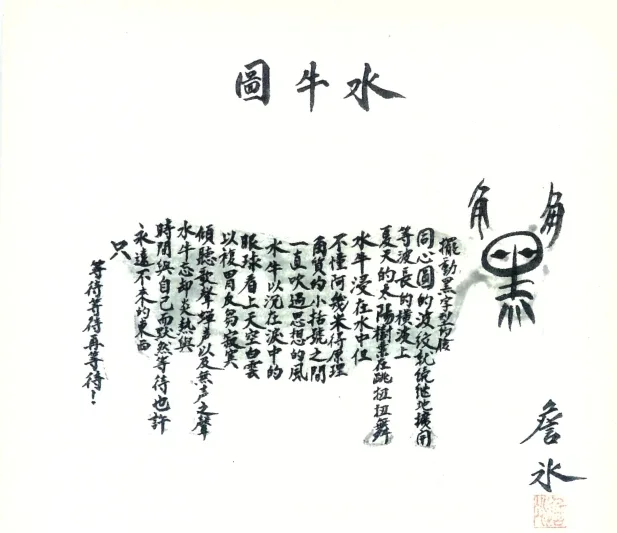 水牛圖
角 角
黑
擺動黑字型的臉
同心圓的波紋就繼續地擴開
等波長的橫波上
夏天的太陽樹葉在跳扭扭舞
水牛浸在水中但
不懂阿幾米得原理
角質的小括號之間
一直吹過思想的風
水牛以沉在淚中的
眼球看上天空白雲
以複胃反芻寂寞
傾聽歌聲蟬声以及無声之聲
水牛忘却炎熱與
時間與自己而默然等待也許
永遠不來的東西
只
等待等待再等待！
詹冰